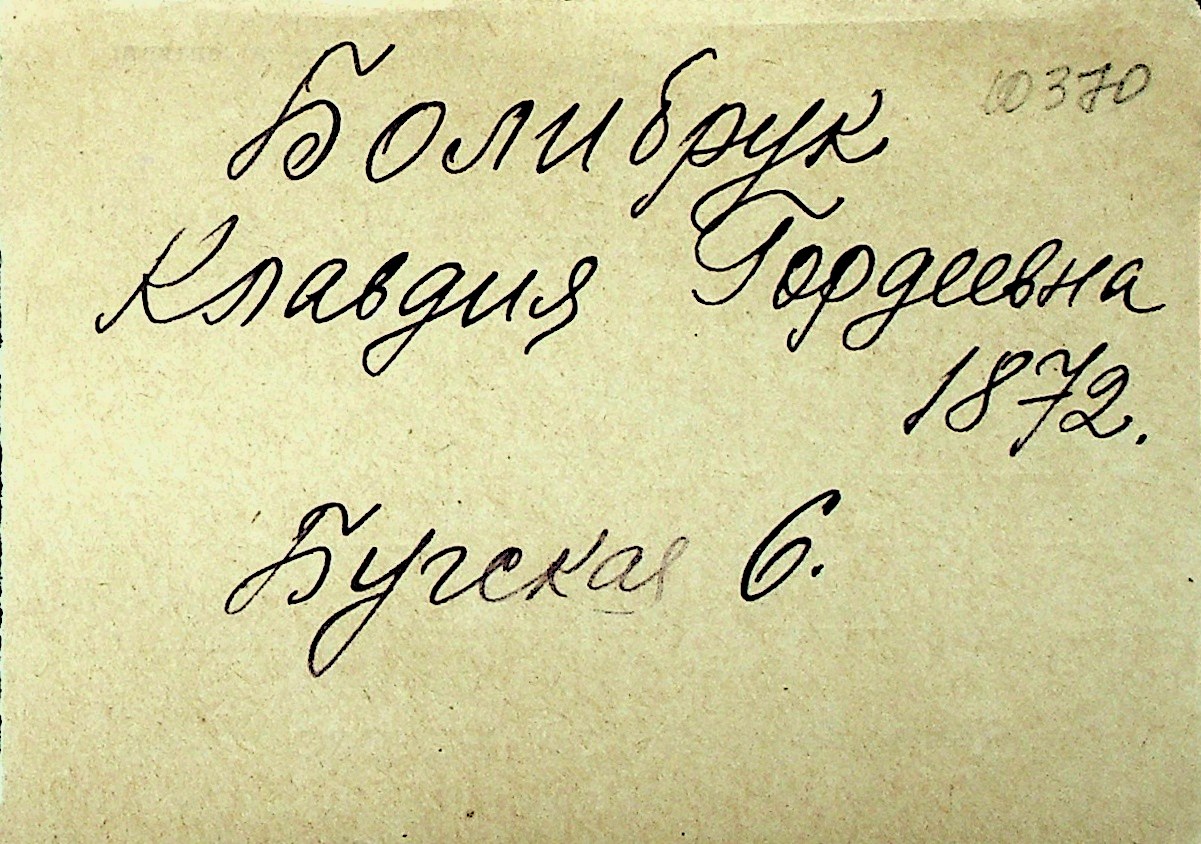 10370
Болибрук
Клавдия Гордеевна
1872.
Бугская 6.